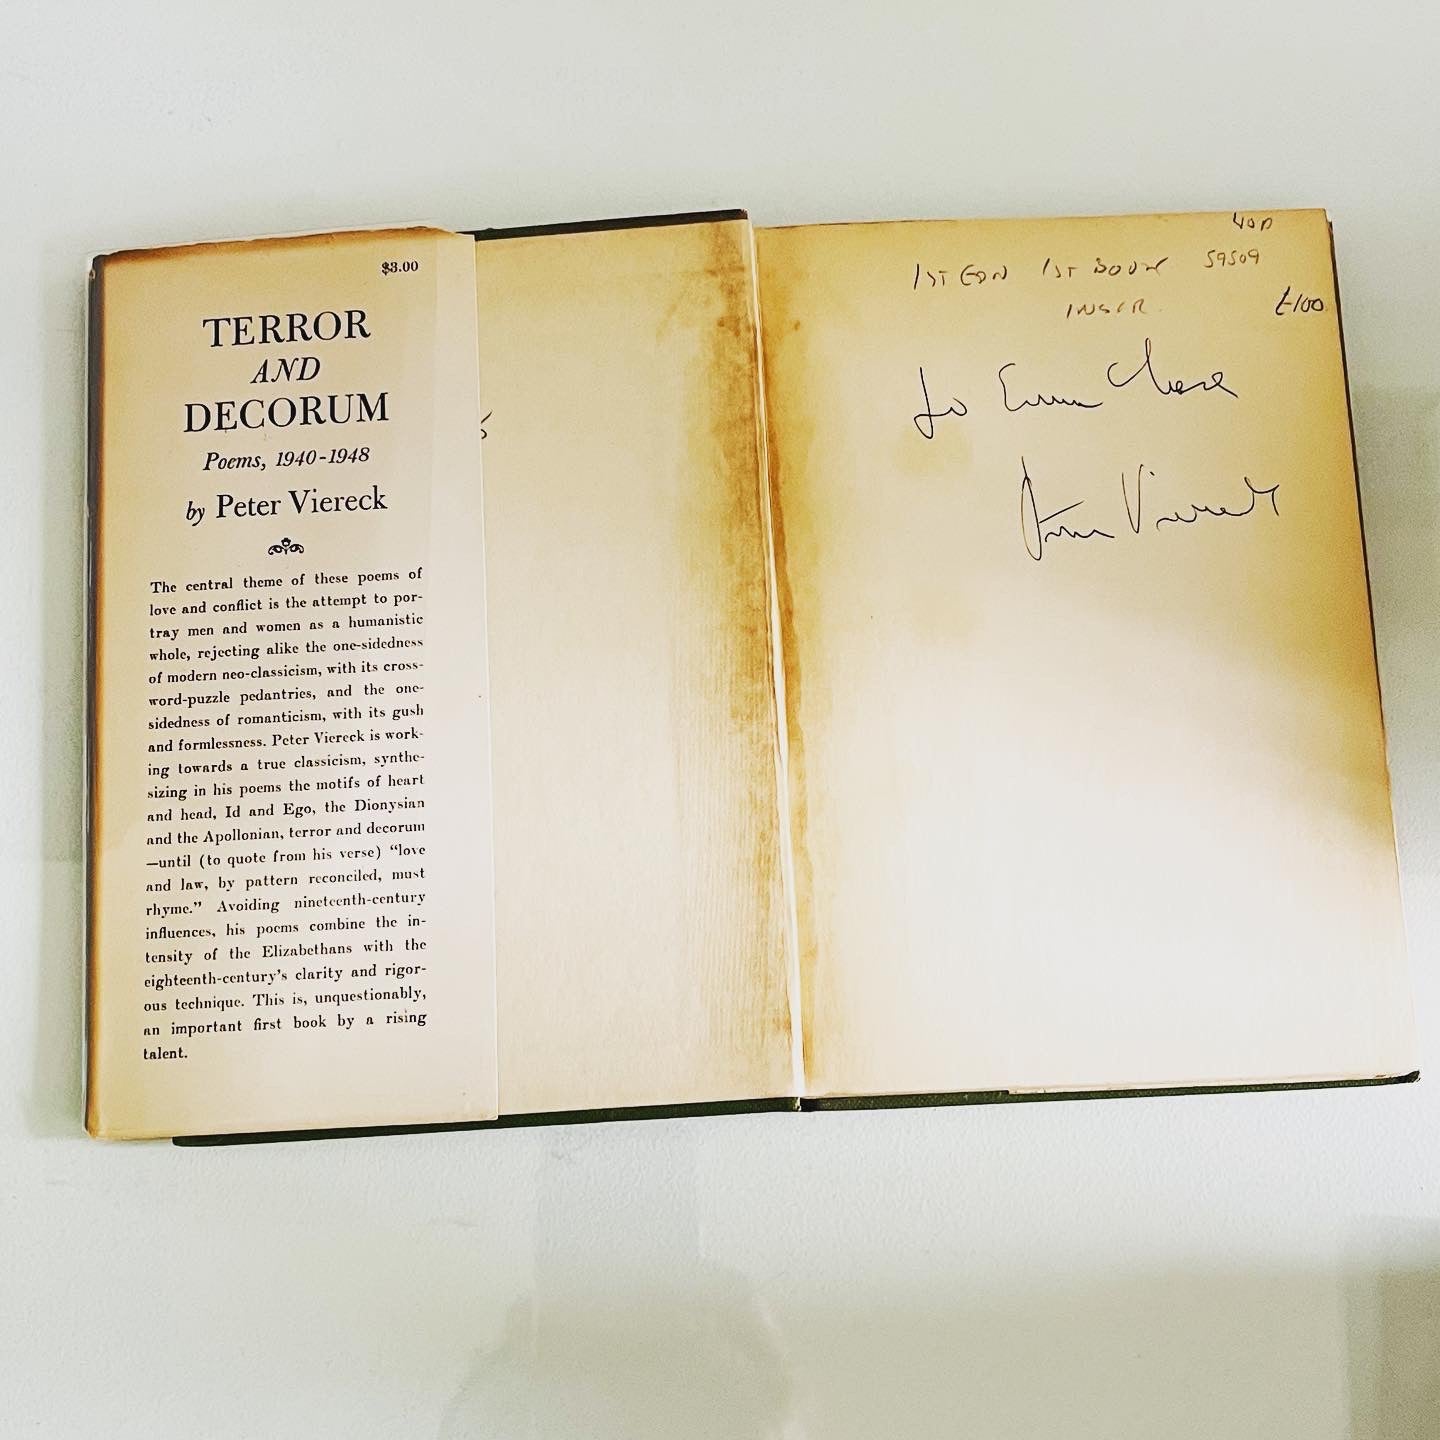 $3.00
TERROR
AND
DECORUM
Poems, 1940-1948
by Peter Viereck
The central theme of these poems of
love and conflict is the attempt to por-
tray men and women as a humanistic
whole, rejecting alike the one-sidedness
of modern neo-classicism, with its cross-
word-puzzle pedantries, and the one-
sidedness of romanticism, with its gush
and formlessness. Peter Viereck is work-
ing towards a true classicism, synthe-
sizing in his poems the motifs of heart
and head, Id and Ego, the Dionysian
and the Apollonian, terror and decorum
—until (to quote from his verse) “love
and law, by pattern reconciled, must
rhyme.” Avoiding nineteenth-century
influences, his poems combine the in-
tensity of the Elizabethans with the
eighteenth-century's clarity and rigor-
ous technique. This is, unquestionably,
an important first book by a rising
talent.
1ST EDN 1ST BOOK 59509
INSCR. £100
to Chase
Peter Viereck